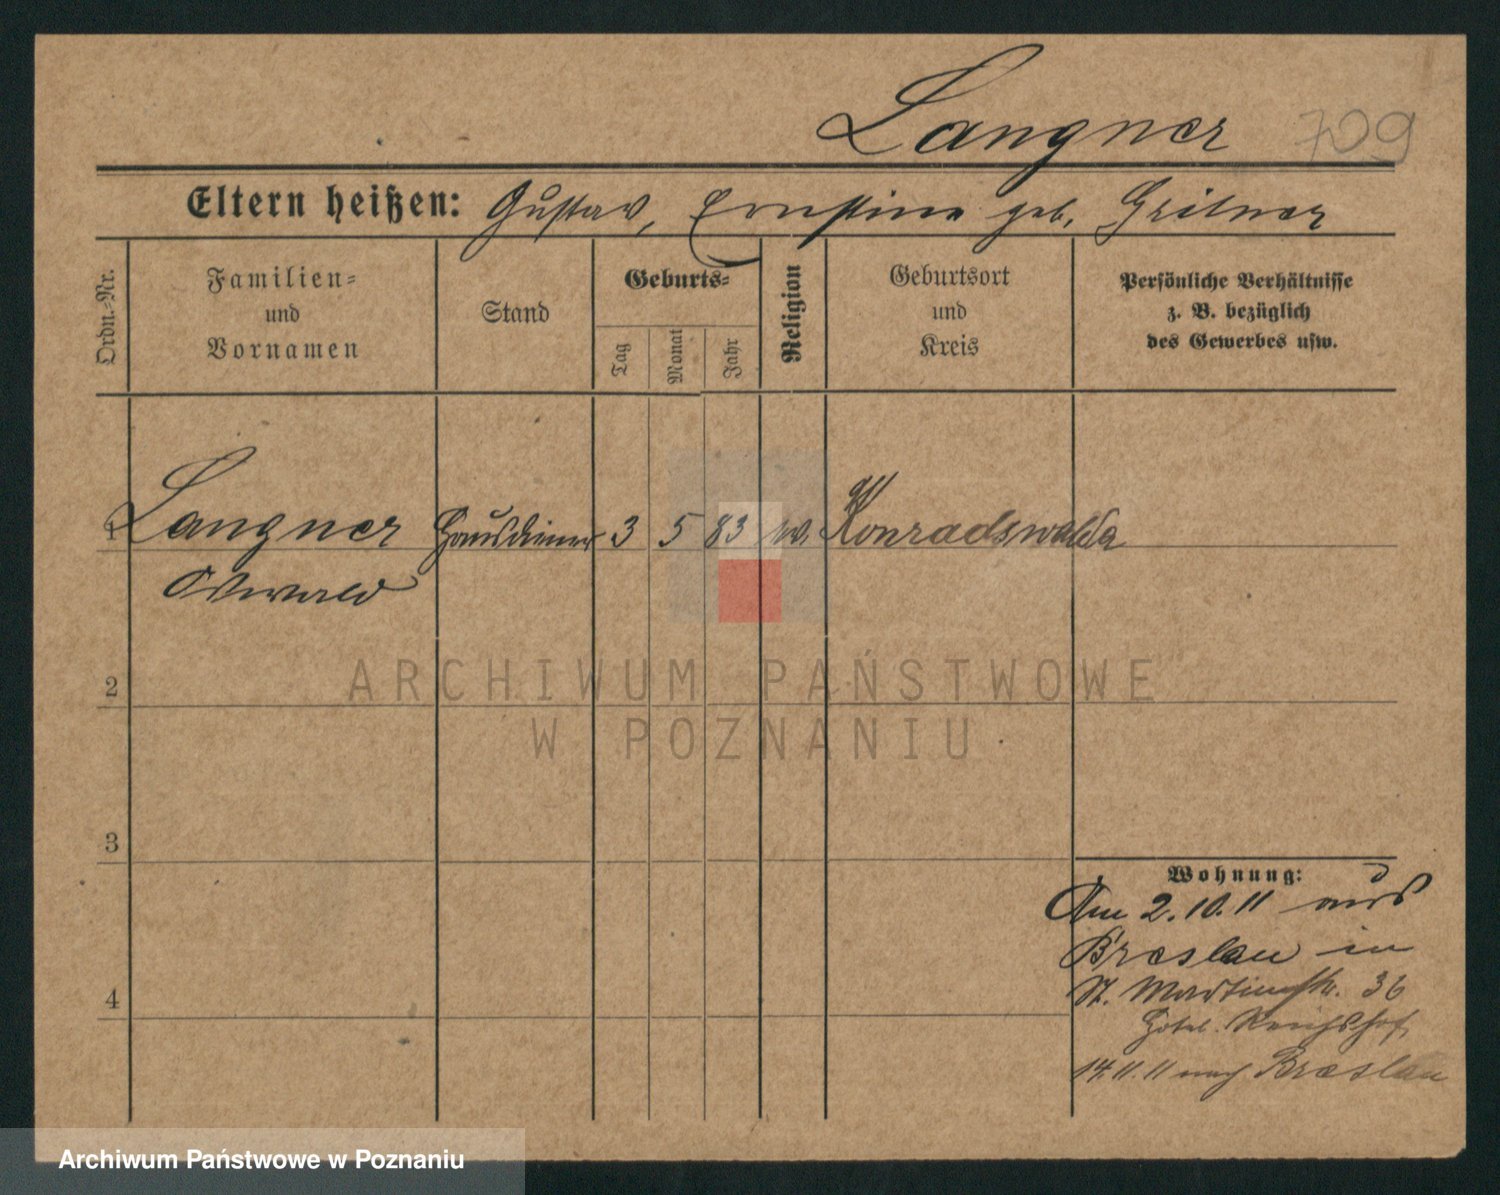 Langner 709
Eltern heißen: Gustav, Ernstine geb.
Ordn.-Nr.
Familien=
und
Vornamen
Stand
Geburts=
Tag
Monat
Jahr
Religion
Geburtsort
und
Kreis
Persönliche Verhältnisse
z. B. bezüglich
des Gewerbes usw.
1 Langner Hausdiener 3 5 83 Konradswalda
Oswald
2
3
4
Wohnung:
Am 2.10.11 aus
Breslau in
St. Martinstr. 36
Hotel Reichshof
14.11.11 nach Breslau
ARCHIWUM PAŃSTWOWE
W POZNANIU
Archiwum Państwowe w Poznaniu